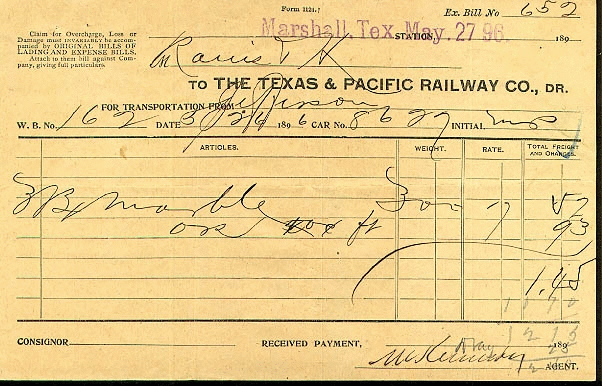 Form 1124.
Ex. Bill No 652
Marshall, Tex. May. 27 96
STATION, 189
Claim for Overcharge, Loss or
Damage must INVARIABLY be accom-
panied by ORIGINAL BILLS OF
LADING AND EXPENSE BILLS.
Attach to them bill against Com-
pany, giving full particulars.
M
TO THE TEXAS & PACIFIC RAILWAY CO., DR.
FOR TRANSPORTATION FROM Jefferson
W. B. No. 162 DATE 5/26 1896 CAR No. 8627 INITIAL
ARTICLES. WEIGHT. RATE. TOTAL FREIGHT AND CHARGES.
3 Bx Marble 300 17 52
ft 93
1.45
CONSIGNOR RECEIVED PAYMENT, 189
McKennedy AGENT.